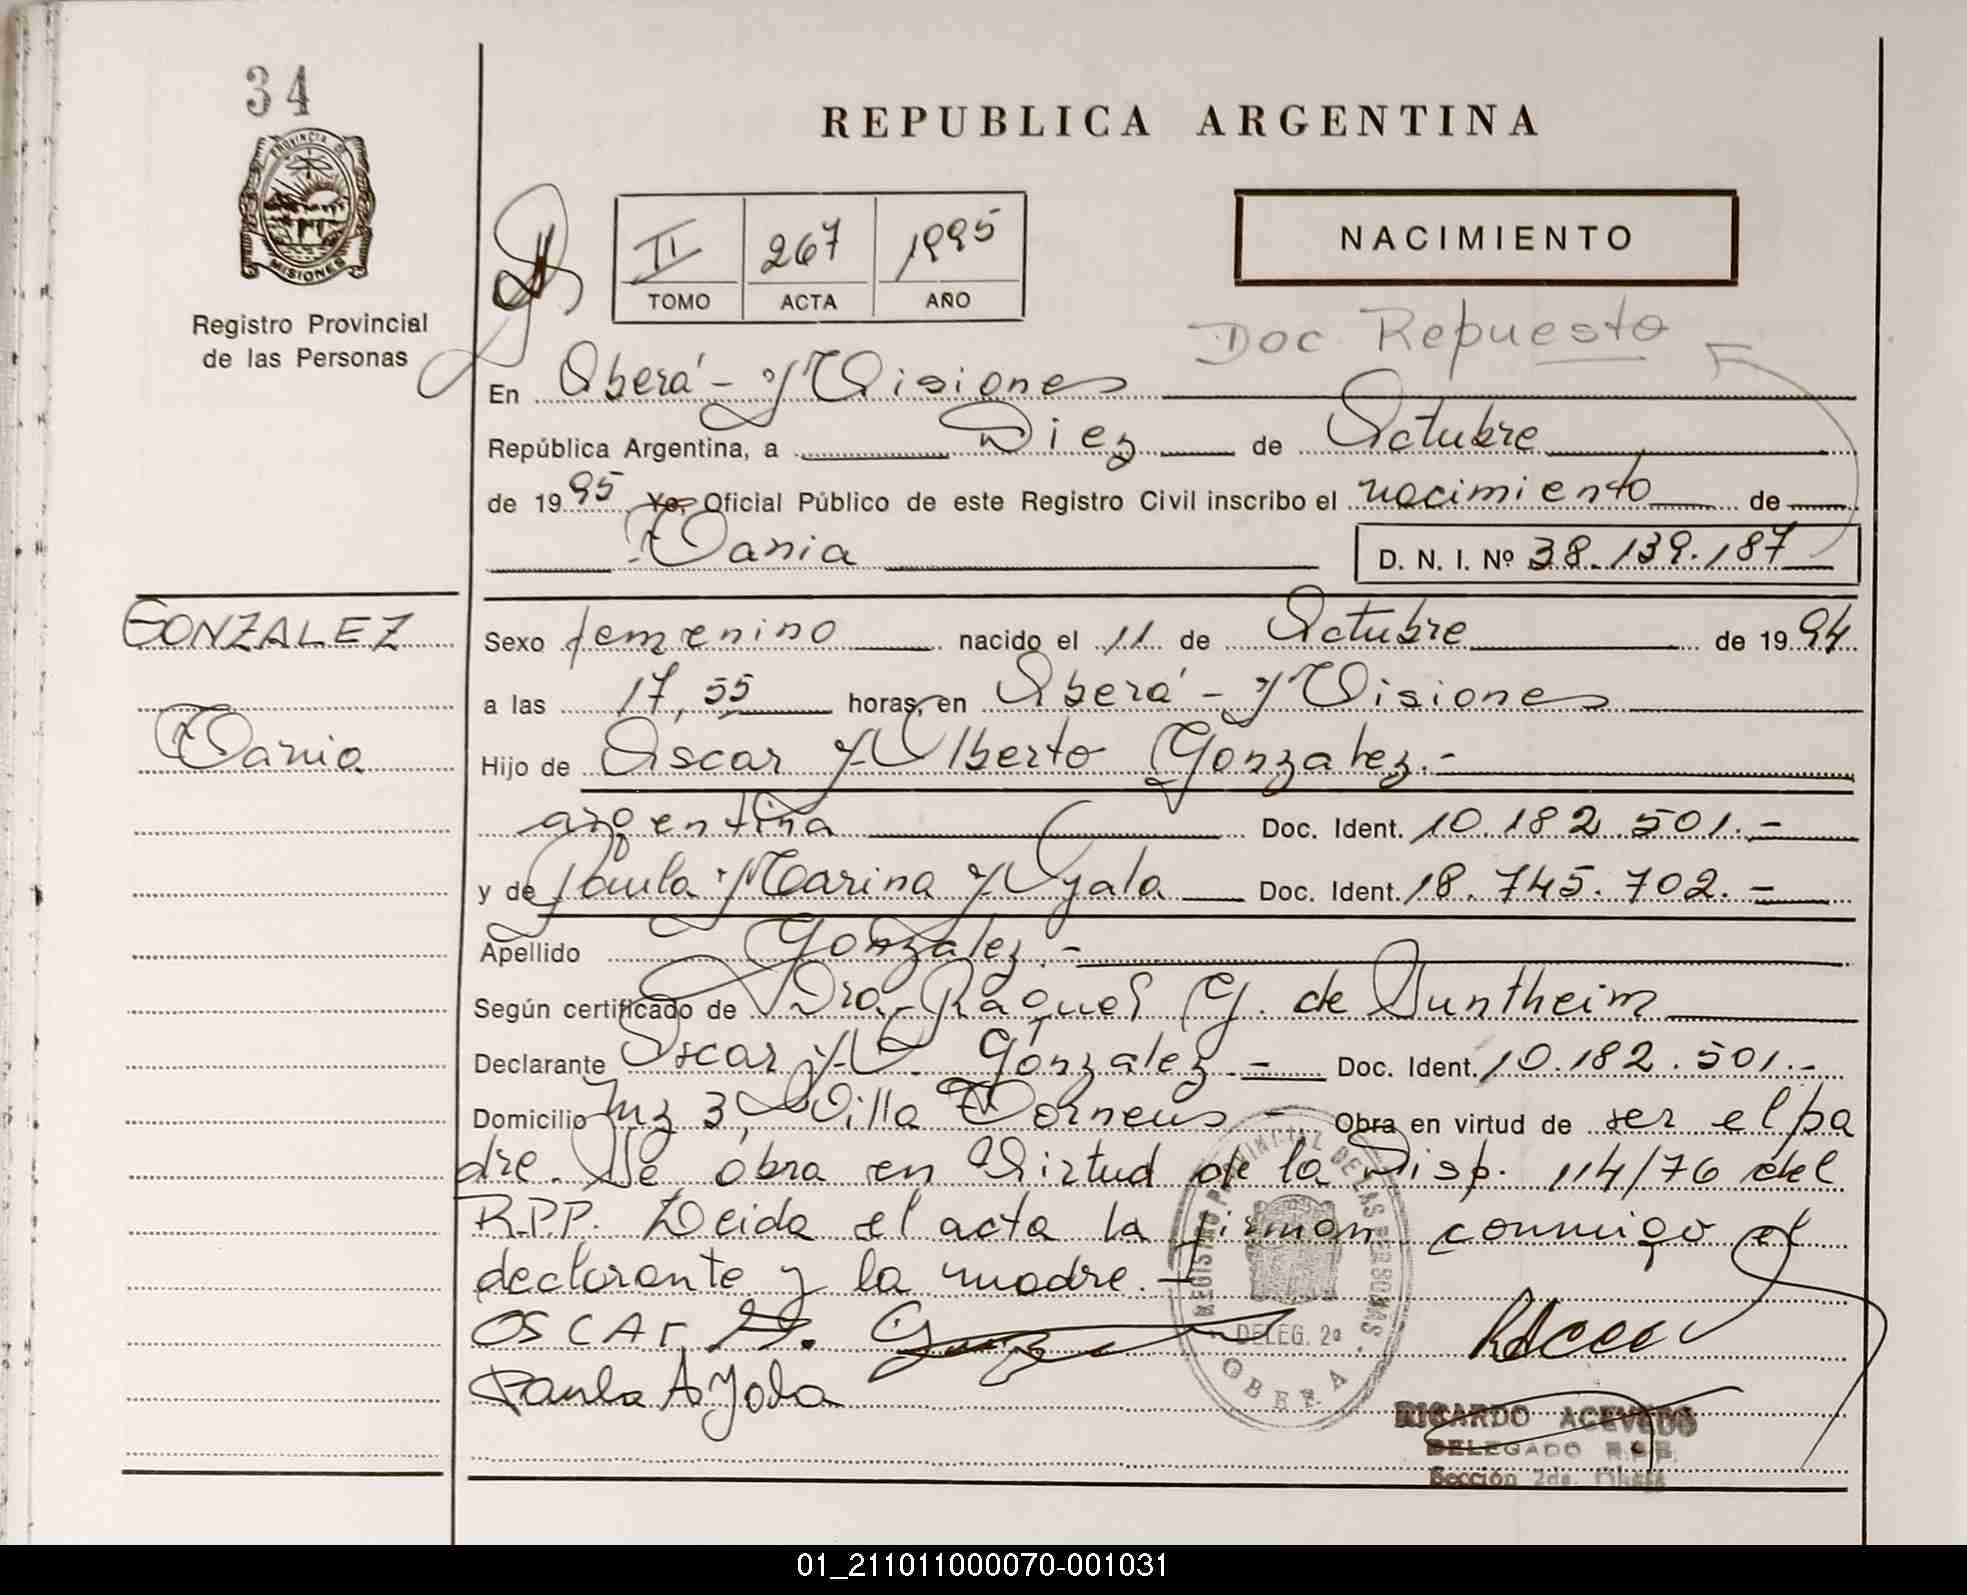 34
PROVINCIA DE
MISIONES
Registro Provincial
de las Personas
REPUBLICA ARGENTINA
II 267 1995
TOMO ACTA AÑO
NACIMIENTO
Doc Repuesto
En Oberá - Misiones
República Argentina, a Diez de Octubre
de 1995 Yo, Oficial Público de este Registro Civil inscribo el nacimiento de
Tania
D. N. I. Nº 38.139.187
GONZALEZ
Tania
Sexo femenino nacido el 11 de Octubre de 1994
a las 17,55 horas, en Oberá - Misiones
Hijo de Oscar Alberto Gonzalez.-
argentina Doc. Ident. 10.182.501.-
y de Paula Marina Ayala Doc. Ident. 18.745.702.-
Apellido Gonzalez.-
Según certificado de Dra. Raquel G. de Suntheim
Declarante Oscar A. Gonzalez.- Doc. Ident. 10.182.501.-
Domicilio Mz 3, Villa - Obra en virtud de ser el pa
dre. Se obra en Virtud de la Disp. 114/76 del
R.P.P. Leida el acta la firman conmigo el
declarante y la madre.-
OSCAr A. G
Paula Ayala
REGISTRO PROVINCIAL DE LAS PERSONAS
DELEG. 2a
OBERA
RICARDO ACEVEDO
DELEGADO R.P.P.
Sección 2da.
01_211011000070-001031